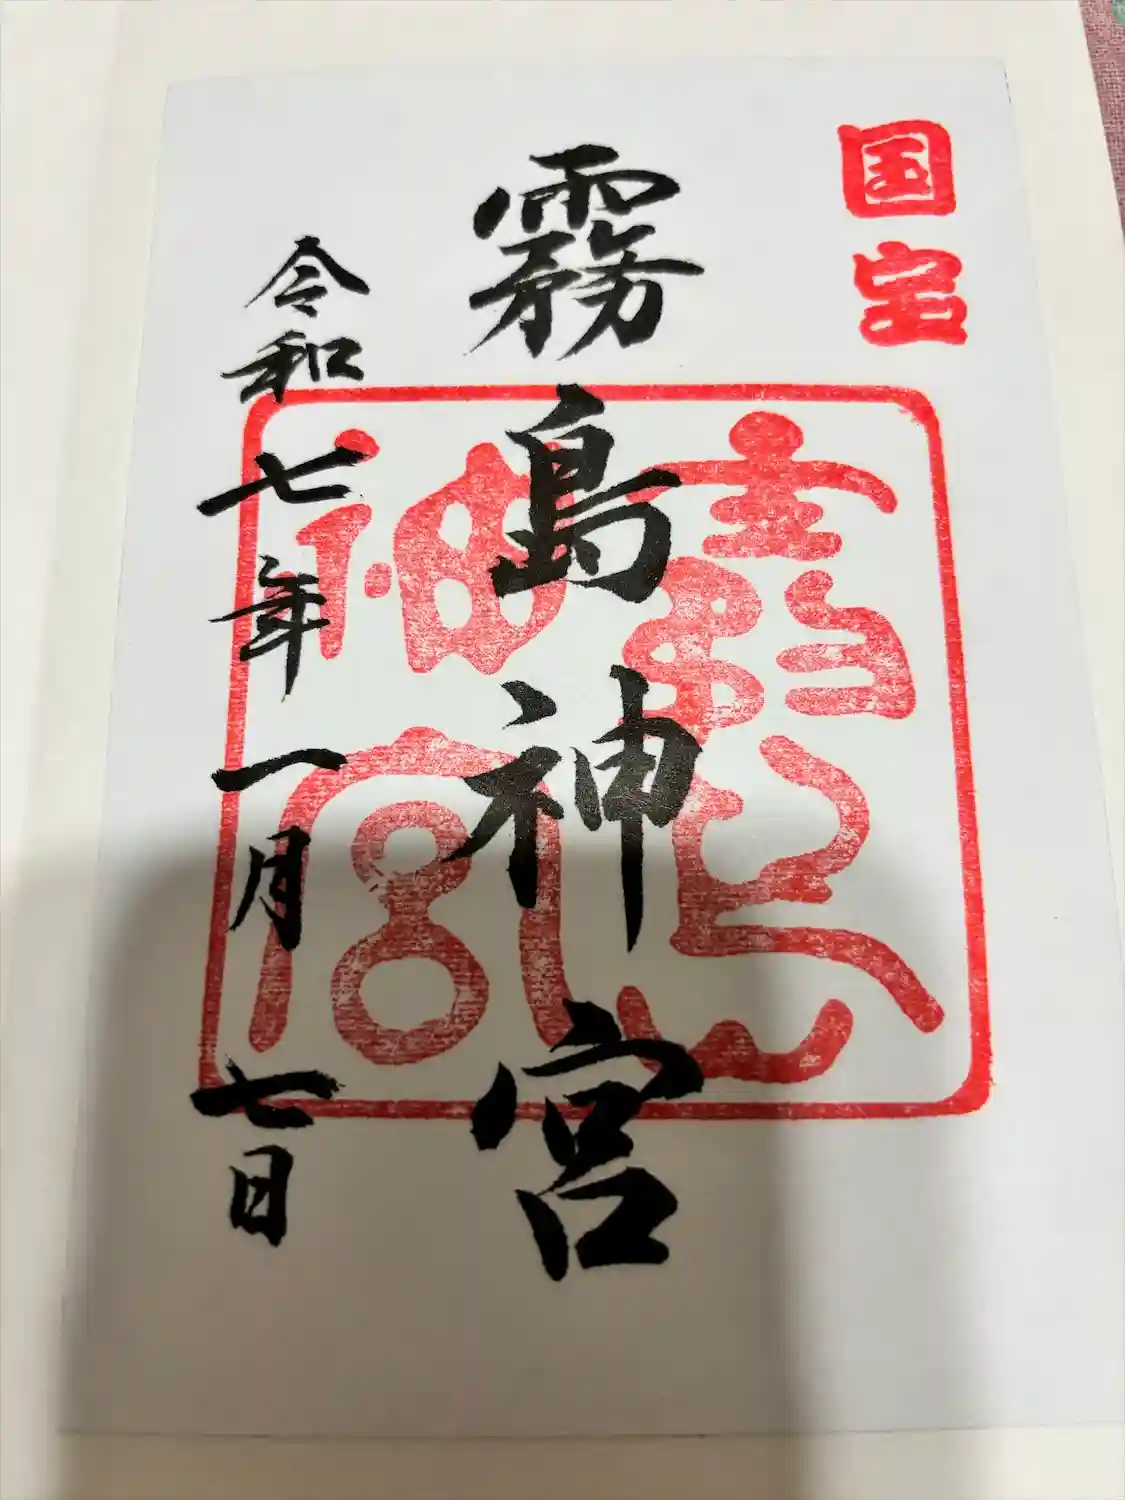 国宝
霧島神宮
霧島神宮
令和七年一月七日